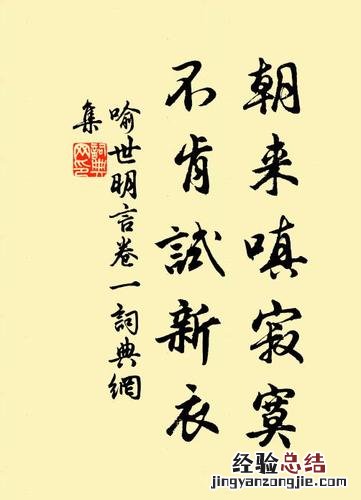 朝来嗔寂寞
不肯試新衣
喻世明言卷一詞典網
集
詞典网印
经验总结
jingyanzongjie.com